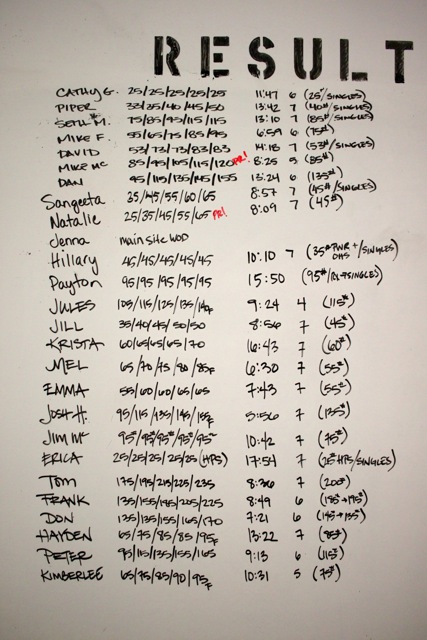 RESULT
CATHY G. 25/25/25/25/25 11:47 6 (25#/SINGLES)
PIPER 33/35/40/45/50 13:42 7 (40#/SINGLES)
SETH M. 75/85/95/115/115 13:10 7 (85#/SINGLES)
MIKE F. 55/65/75/85/95 6:59 6 (75#)
DAVID 53/73/73/83/83 14:18 7 (53#/SINGLES)
MIKE MC 85/95/105/115/120 PR! 8:25 5 (85#)
DAN 95/115/135/145/155 13:24 6 (135#)
Sangeeta 35/45/55/60/65 8:57 7 (45#/SINGLES)
Natalie 25/35/45/55/65 PR! 8:09 7 (45#)
Jenna main site WOD
Hillary 45/45/45/45/45 10:10 7 (35# PWR + OHS/SINGLES)
Payton 95/95/95/95/95 15:50 (95#/SINGLES)
JULES 105/115/125/135/140F 9:24 4 (115#)
JILL 35/40/45/50/50 8:56 7 (45#)
KRISTA 60/65/65/65/70 16:43 7 (60#)
MEL 65/70/75/80/85F 6:30 7 (55#)
EMMA 55/60/60/65/65 7:43 7 (55#)
JOSH H. 95/115/135/145/155F 5:56 7 (135#)
JIM MC 95#/95#/95#/95#/95# 10:42 7 (75#)
ERICA 25/25/25/25/25 (HPS) 17:54 7 (25# HPS/SINGLES)
TOM 175/195/215/225/235 8:36 7 (200#)
FRANK 135/155/195/205/225 8:49 6 (185#→195#)
DON 135/135/155/165/170 7:21 6 (145#→155#)
HAYDEN 65/75/85/85/95F 13:22 7 (85#)
PETER 95/115/135/155/165 9:13 6 (115#)
KIMBERLEE 65/75/85/90/95F 10:31 5 (75#)